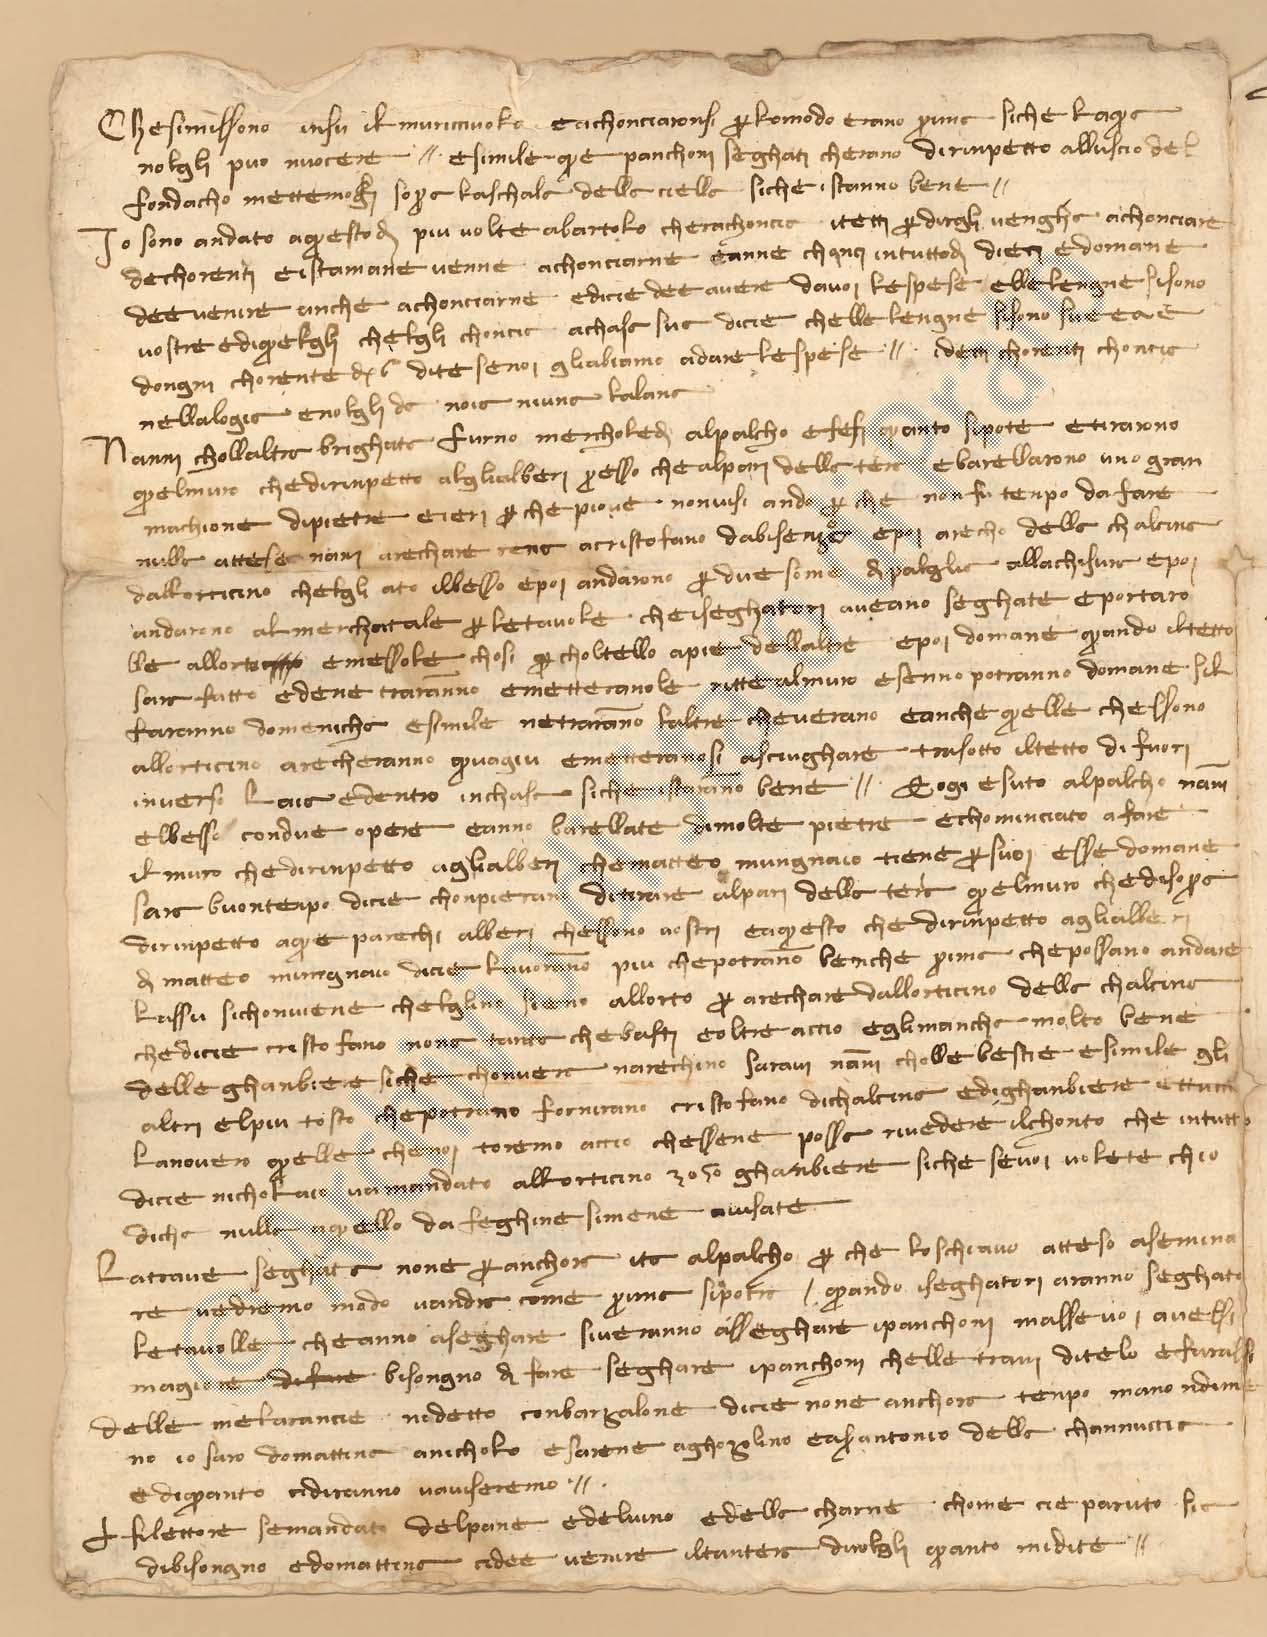 Che si missono insu il muricciuolo e achonciaronsi per lo modo erano prima siche l aqua
nolgli puo nuocere // e simile que panchoni seghati cherano dirinpetto all uscio del
fondacho mettemogli sopra la schala della ciella siche istanno bene //
Io sono andato a questo dì piu volte a bartolo cherachoncia i tetti per dirgli vengha achonciare
de chorenti e istamane venne achonciarne e anne chonci in tutto dì dieci e domane
dee venire anche achonciarne e dicie dee avere da voi le spese e lle lengne si sono
vostre e di quelgli chelgli choncia a chasa sua dicie che lle lengne si sono sue e a e
d ongni chorente d 6 dite se noi gli abiamo a dare le spese // i detti chorenti choncia
nella logia e nolgli da noia niuna l alana
Nanni choll altra brighata furno mercholedì al palcho e fesi quanto si pote e tirarono
quel muro che dirinpetto a lgli alberi presso che al pari della tera e barellarono uno gran
machione di pietre e ieri perche piove non visi ando per che non fu tenpo da fare
nulla attese nani arechare rena a cristofano da bisenzo e poi arecho della chalcina
dall orticino chelgli ato il besso e poi andarono per due some di palglia alla chiusura e poi
andarono al merchatale per le tavole che i seghatori aveano seghate e portaro
lle all orto e messole chosi per choltello a pie dell altre e poi domane quando il tetto
sara fatto e dene traranno e metteranole ritte al muro e se nno potranno domane si l
faranno domenicha e simile ne trarano l altre che v erano e anche quelle che ssono
all orticino arecheranno qua giu e metteranosi asciughare tra sotto il tetto di fuori
inverso l aia e dentro in chasa siche istaranno bene // E ogi e suto al palcho nani
e l besso con due opere e anno barellate di molte pietre e chominciato a fare
il muro che dirinpetto agli alberi che matteo mungnaio tiene per suoi e sse domane
sara buon tenpo dicie chonpieran di tirare al pari della tera quel muro che di sopra
dirinpetto a que parechi alberi che ssono vostri e a questo che dirinpetto agli alberi
di matteo mungnaio dicie lavorano piu che potrano benche prima che possano andare
lassu si chonviene chelglino sieno all orto per arechare dall orticino della chalcina
che dicie cristofano nona tanta che basti e oltre a ccio egli mancha molto bene
delle ghanbiere siche chonvera n arechino saravi nani cholle bestie e simile gli
altri e l piu tosto che potrano forniranno cristofano di chalcina e di ghanbiere e tutte
l anovero quelle che noi toremo accio che ssene possa rivedere il chonto che in tutto
dicie nicholaio v a mandato all orticino ghanbiere siche se voi volete chio
dicha nulla a quello da feghine si mene avisate
La trave seghata none per anchora ita al palcho per che lo schiavo atteso a semina
re vedremo modo vandia come prima si potra / quando i seghatori aranno seghato
le tavolle che anno a seghare si veranno a sseghare i panchoni ma sse voi avessi
magiore bisongno di fare seghare i panchoni che lle travi ditelo e farassi
delle melarancie n i detto con barzalone dicie none anchora tenpo ma no ndime
no io saro domattina a nicholo e sarene a ghozolino e a ser antonio della channuccia
e di quanto ci diranno v aviseremo //
Al lettore se mandato del pane e del vino e della charne chome cie paruto sia
di bisongno e domattina ci dee venire il tantera diròlgli quanto mi dite //